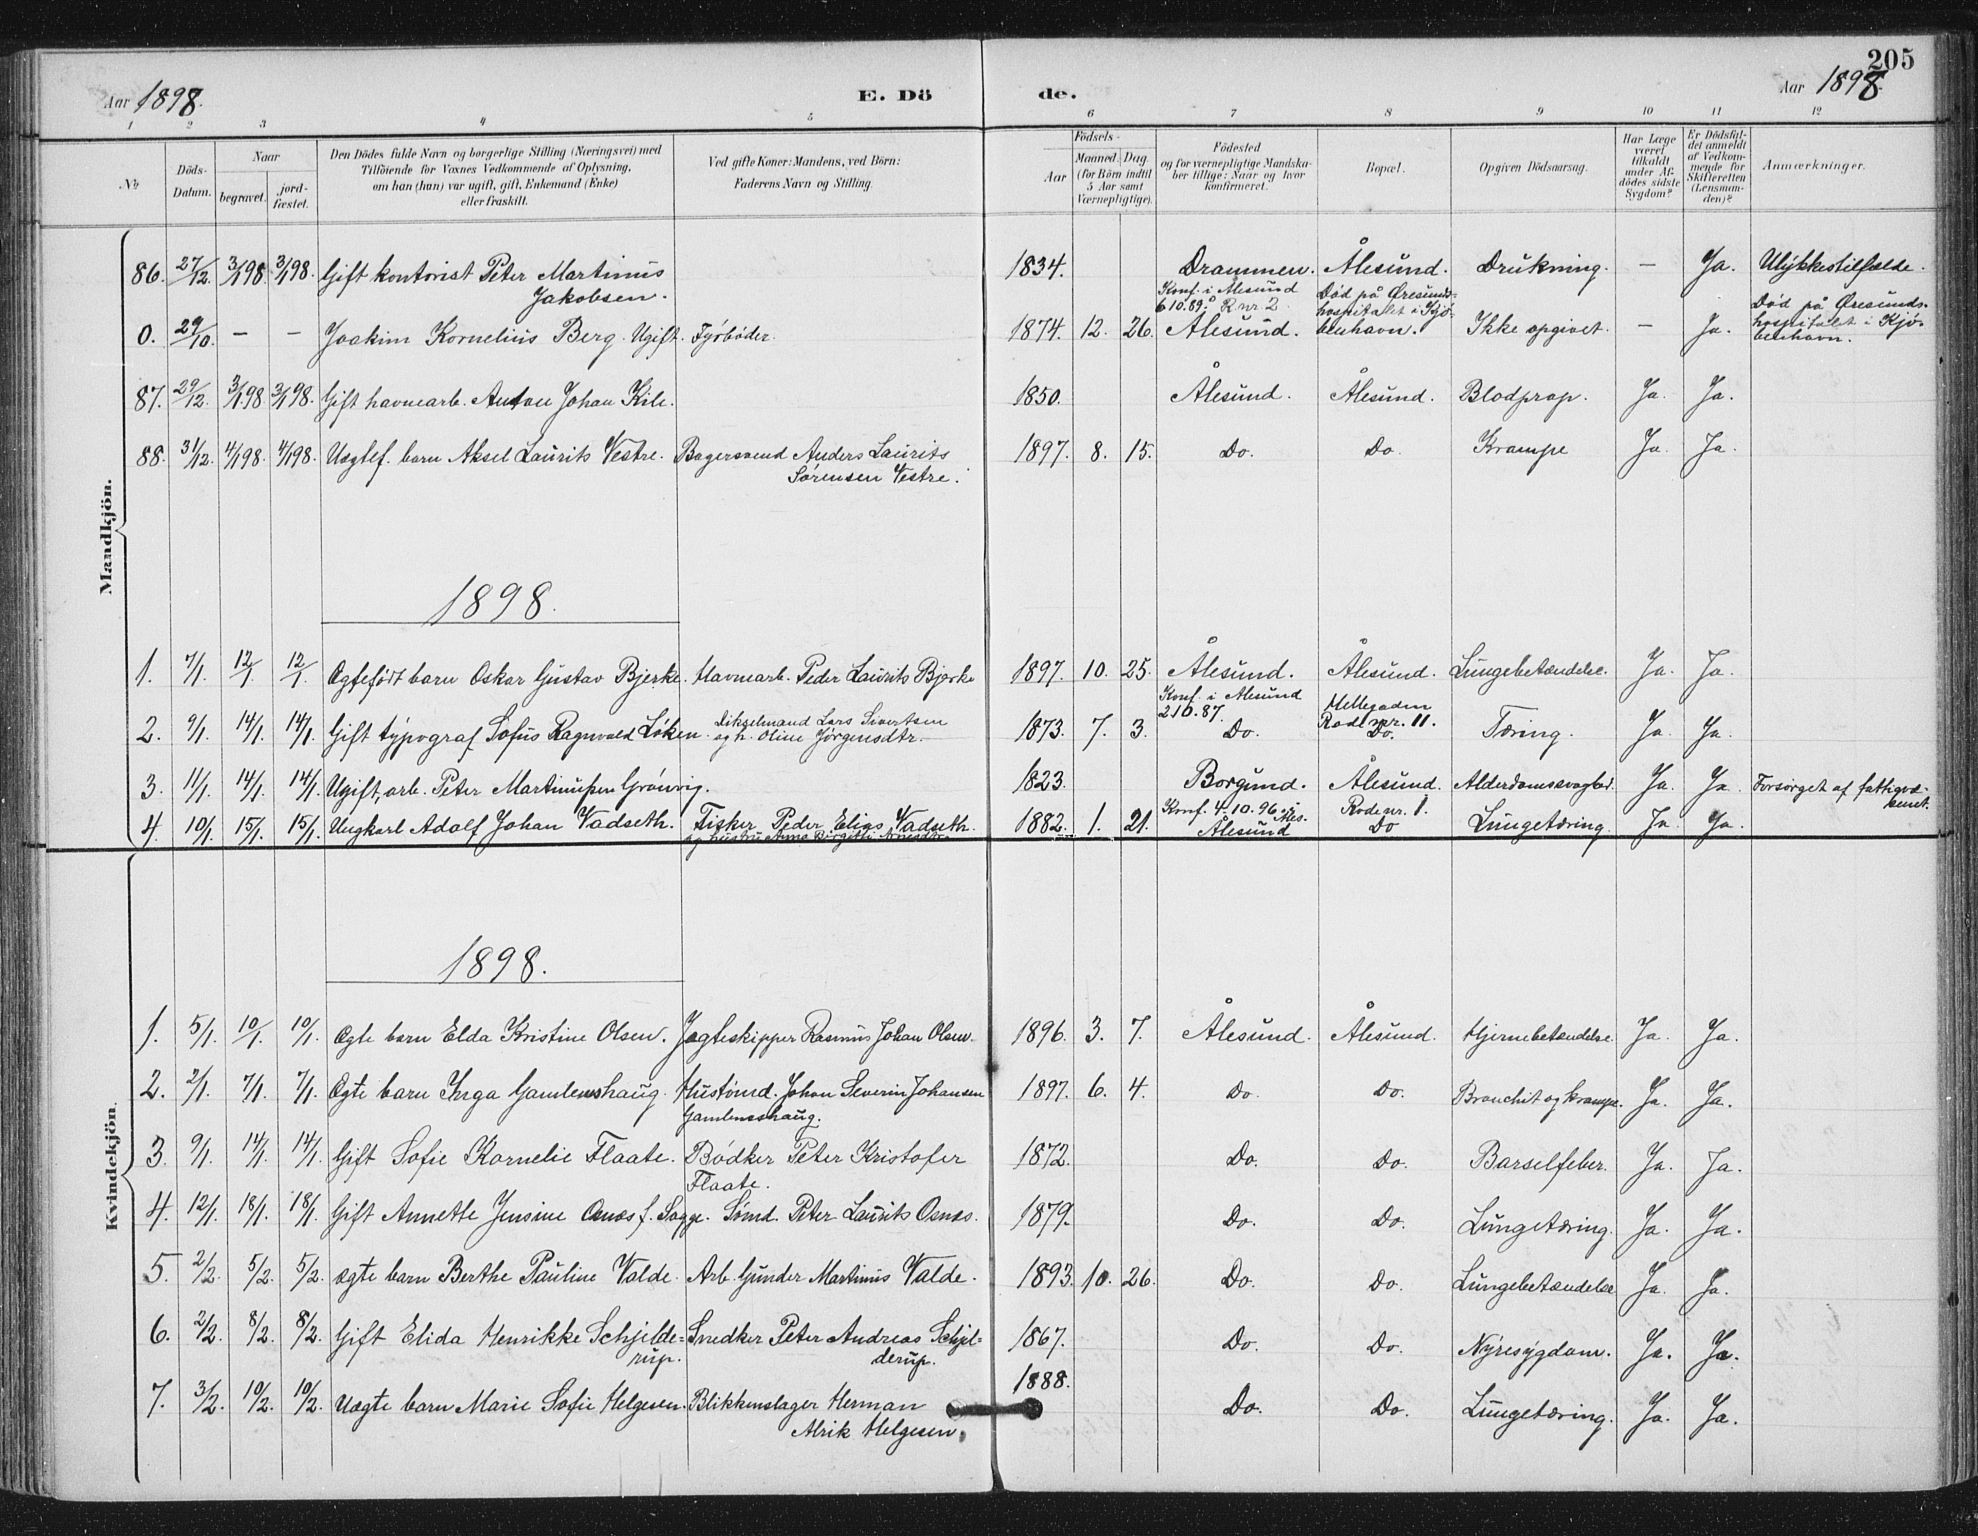 205
Aar 1898.
E. Dö de.
Aar 1898.
1 2 3 4 5 6 7 8 9 10 11 12
№
Döds-Datum.
Naar
begravet.
jordfæstet.
Den Dödes fulde Navn og borgerlige Stilling (Næringsvei) med
Tilföiende for Voxnes Vedkommende af Oplysning,
om han (hun) var ugift, gift, Enkemand (Enke)
eller fraskilt.
Ved gifte Koner: Mandens, ved Börn:
Faderens Navn og Stilling.
Födsels-
Aar
Maaned. Dag.
(for Börn indtil
5 Aar samt
Værnepligtige).
Födested
og for værnepligtige Mandska-
ber tillige: Naar og hvor
konfirmeret.
Bopæl.
Opgiven Dödsaarsag.
Har Læge
været
tilkaldt
under Af-
dödes sidste
Sygdom?
Er Dödsfal-
det anmeldt
af Vedkom-
mende for
Skifteretten
(Lensman-
den)?
Anmærkninger.
Mandkjön.
86. 27/12. 3/1 98. 3/1 98. Gift kontorist Peter Martinus
Jakobsen.
1834. Drammen. Ålesund. Drukning. — Ja. Ulykkestilfælde.
Konf. i Alesund
6 10.89. R nr 2
Död på Øresunds=
hospitalet i Kjø-
benhavn.
Död på Øresunds-
hospitalet i Kjø-
benhavn.
0. 29/10. — — Joakim Kornelius Berg. Ugift. Fyrbøder. 1874. 12. 26. Ålesund. Ikke opgivet. — Ja.
87. 29/12. 3/1 98. 3/1 98. Gift havnearb. Anton Johan Kile. 1850. Ålesund. Ålesund. Blodprop. Ja. Ja.
88. 31/12. 4/1 98. 4/1 98. Uægtef. barn Aksel Laurits Vestre. Bagersvend Anders Laurits
Sørensen Vestre.
1897. 8. 15. Do. Do. Krampe Ja. Ja.
1898.
1. 7/1. 12/1 12/1 Ægtefödt barn Oskar Gustav Bjerke. Havnearb. Peder Laurits Bjerke 1897. 10. 25. Ålesund. Ålesund. Lungebetændelse. Ja. Ja.
Konf. i Alesund
2 10.87.
Hellegaden
Rode nr. 11.
2. 9/1. 14/1. 14/1. Gift typograf Sofus Ragnvald Løken. Lars Sivertsen
og h. Oline Jørgensdtr.
1873. 7. 3. Do. Do. Tæring. Ja. Ja.
3. 11/1. 14/1. 14/1. Ugift, arb. Peter Martinussen Grønvig. 1823. Borgund. Ålesund. Alderdomssvaghed. Ja. Ja. Forsørget af fattigvæ-
senet.
Konf. 4.10.96 i Ales.
Rode nr. 1.
4. 10/1. 15/1. 15/1. Ungkarl Adolf Johan Vadseth. Fisker Peder Elias Vadseth.
og hustru Anna
1882. 1. 21. Ålesund Do Lungetæring. Ja Ja.
Kvindekjön.
1898.
1. 5/1. 10/1. 10/1. Ægte barn Elda Kristine Olsen. Jagteskipper Rasmus Johan Olsen. 1896. 3. 7. Ålesund. Ålesund. Hjernebetændelse. Ja. Ja.
2. 2/1. 7/1. 7/1. Ægte barn Inga Gamlemshaug. Hustømd. Johan Severin Johansen
Gamlemshaug.
1897. 6. 4. Do. Do. Bronchit og krampe. Ja. Ja.
3. 9/1. 14/1. 14/1. Gift Sofie Kornelie Flaate. Bødker Peter Kristofer
Flaate.
1872. Do. Do. Barselfeber. Ja. Ja.
4. 12/1. 18/1. 18/1. Gift Annette Jensine Osnes f. Sagge. Sømd. Peter Laurits Osnes. 1879. Do. Do. Lungetæring. Ja. Ja.
5. 2/2. 5/2. 5/2. ægte barn Berthe Pauline Valde. Arb. Gunder Martinus Valde. 1893. 10. 26. Do. Do. Lungebetændelse Ja. Ja.
6. 2/2. 8/2. 8/2. Gift Elida Henrikke Schjelde=
rup.
Snedker Peter Andreas Schjel=
derup.
1867. Do. Do. Nyresygdom. Ja. Ja.
7. 3/2. 10/2. 10/2. Uægte barn Marie Sofie Helgesen. Blikkenslager Herman
Alrik Helgesen.
1888. Do. Do. Lungetæring. Ja. Ja.